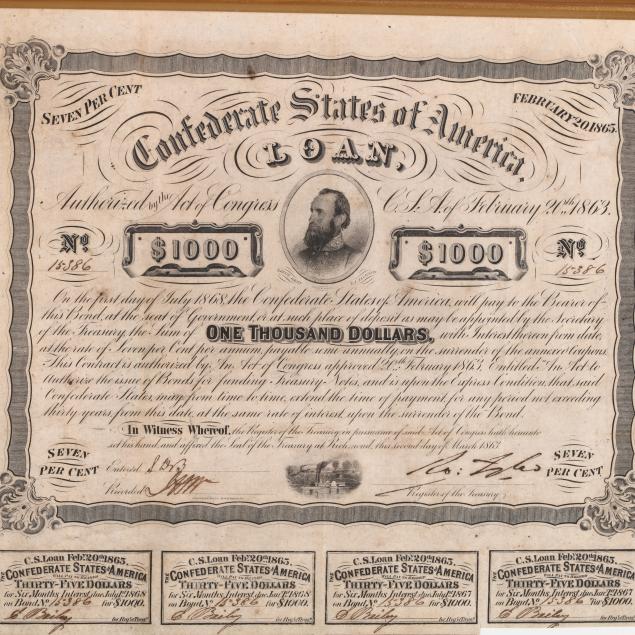 SEVEN PER CENT
FEBRUARY 20, 1863.
Confederate States of America.
LOAN,
Authorized by the Act of Congress C.S.A. of February 20th 1863.
No $1000 $1000 No
15386 15386
On the first day of July 1868, the Confederate States of America, will pay to the Bearer of
this Bond, at the seat of Government, or at such place of deposit as may be appointed by the Secretary
of the Treasury, the Sum of ONE THOUSAND DOLLARS, with Interest thereon from date,
at the rate of Seven per Cent per annum, payable semi annually on the surrender of the annexed Coupons.
This Contract is authorized by An Act of Congress approved 20th February 1863, Entitled: An Act to
Authorize the issue of Bonds for funding Treasury Notes, and is upon the Express Condition, that said
Confederate States, may from time to time, extend the time of payment for any period not exceeding
thirty years from this date, at the same rate of interest, upon the surrender of the Bond.
In Witness Whereof, the Register of the Treasury, in pursuance of said Act of Congress hath hereunto
set his hand, and affixed the Seal of the Treasury at Richmond, this second day of March 1863
SEVEN PER CENT
Entered
Ro: Tyler
SEVEN PER CENT
Recorded
Register of the Treasury
C.S. Loan Feb. 20th 1863.
THE CONFEDERATE STATES OF AMERICA
THIRTY-FIVE DOLLARS
for Six Months Interest due July 1st 1868
on Bond No 15386 for $1000.
C Bailey for Reg'r Treas'y
C.S. Loan Feb. 20th 1863.
THE CONFEDERATE STATES OF AMERICA
THIRTY-FIVE DOLLARS
for Six Months Interest due Jan'y 1st 1868
on Bond No 15386 for $1000.
C Bailey for Reg'r Treas'y
C.S. Loan Feb. 20th 1863.
THE CONFEDERATE STATES OF AMERICA
THIRTY-FIVE DOLLARS
for Six Months Interest due July 1st 1867
on Bond No 15386 for $1000.
C Bailey for Reg'r Treas'y
C.S. Loan Feb. 20th 1863.
THE CONFEDERATE STATES OF AMERICA
THIRTY-FIVE DOLLARS
for Six Months Interest due Jan'y 1st 1867
on Bond No 15386 for $1000.
C Bailey for Reg'r Treas'y